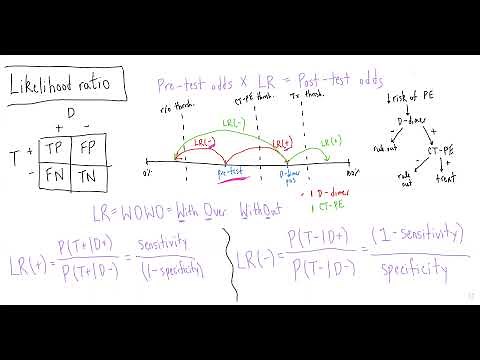 Likelihood ratio
Pre-test odds x LR = Post-test odds
D
+ -
T + TP FP
- FN TN
r/o thresh.
CT-PE thresh.
Tx thresh.
LR(-)
LR(-)
LR(+)
LR(+)
0%
pre-test
D-dimer
pos
100%
- 1 D-dimer
1 CT-PE
↓risk of PE
D-dimer
- +
rule out
CT-PE
- +
rule
out
treat
LR = WOWO = With Over WithOut
LR(+) = P(T+|D+) / P(T+|D-) = sensitivity / (1-specificity)
LR(-) = P(T-|D+) / P(T-|D-) = (1-sensitivity) / specificity